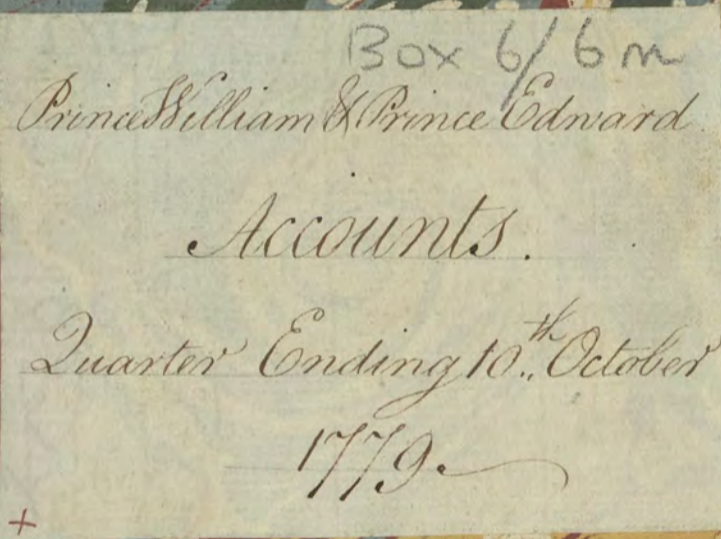 Box 6/6m
Prince William & Prince Edward
Accounts.
Quarter Ending 10th October
1779.
+